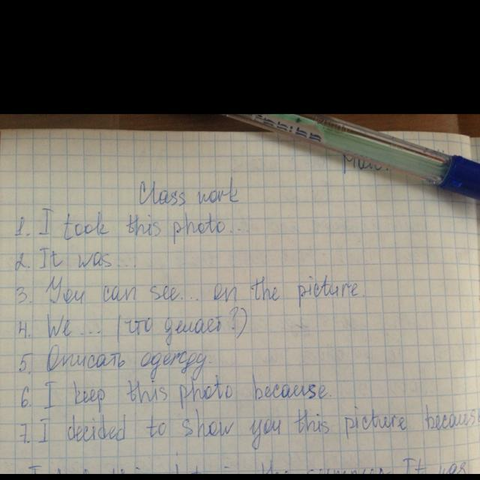 Class work
1. I took this photo...
2. It was...
3. You can see... on the picture
4. We... (что делает?)
5. Описать одежду.
6. I keep this photo because.
7. I decided to show you this picture because